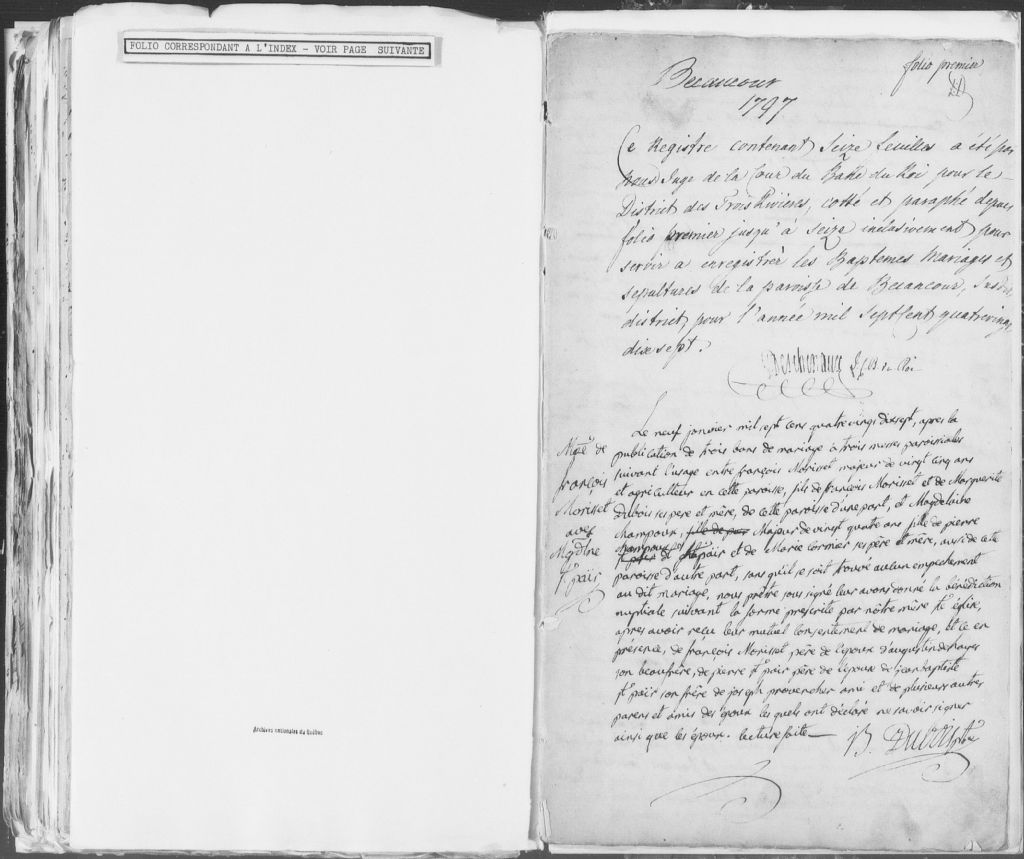 FOLIO CORRESPONDANT A L'INDEX - VOIR PAGE SUIVANTE
Archives nationales du Québec
folio premier
Becancour
1797
Ce Registre contenant Seize feuilles a été par
nous Juge de la Cour du Banc du Roi pour le
District des Trois Rivieres, cotté et paraphé depuis
folio premier jusqu'à seize inclusivement pour
servir a enregistrer les Baptemes Mariages et
sepultures de la paroisse de Becancour, susdit
district, pour l'année mil Sept Cent quatrevingt
dixsept.
Le neuf janvier mil sept cens quatre vingt dixsept, après la
publication de trois bans de mariage à trois messes paroissiales
suivant l'usage entre françois Morisset majeur de vingt cinq ans
et agriculteur en cette paroisse, fils de francois Morisset et de Marguerite
Dubois ses pere et mère, de cette paroisse d'une part, et Magdelaine
champoux, fille de Majeur de vingt quatre ans fille de pierre
champoux St pair et de Marie Cormier ses père et mère, aussi de cette
paroisse d'autre part, sans qu'il se soit trouvé aucun empechement
au dit mariage, nous prêtre sous signé leur avons donné la bénédiction
nuptiale suivant la forme prescrite par nôtre mère Ste église,
apres avoir reçu leur mutuel consentement de mariage, Et ce en
présence, de françois Morisset père de l'epoux d'augustin deshayes
son beaufrère, de pierre St pair père de l'epouse de jean baptiste
St pair son frère de joseph provencher ami et de plusieurs autres
parens et amis des époux les quels ont déclaré ne savoir signer
ainsi que les époux. lecture faite
B. Dubois ptre
Mge de
françois
Morisset
avec
Mgdlne
St pair